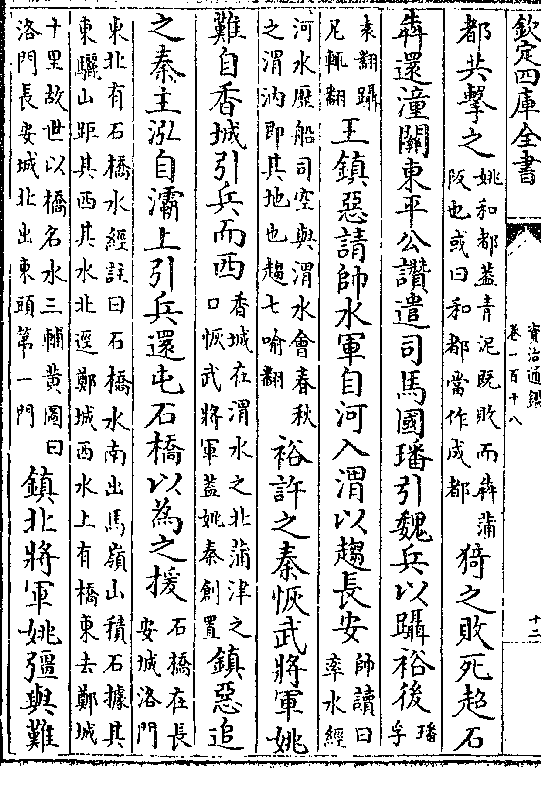 欽定四庫全書
資治通鑑
卷一百十八
十二
都共擊之
姚和都蓋青泥既敗而犇蒲
阪也或曰和都當作成都
猗之敗死超石
犇還潼關東平公讚遣司馬國璠引魏兵以躡裕後
璠
孚
袁翻躡
尼輒翻
王鎮惡請帥水軍自河入渭以趨長安
帥讀曰
率水經
河水歷船司空與渭水會春秋
之渭汭即其地也趨七喻翻
裕許之秦恢武將軍姚
難自香城引兵而西
香城在渭水之北蒲津之
口恢武將軍蓋姚秦創置
鎮惡追
之秦主泓自灞上引兵還屯石橋以為之援
石橋在長
安城洛門
東北有石橋水經註曰石橋水南出馬嶺山積石據其
東驪山距其西其水北逕鄭城西水上有橋東去鄭城
十里故世以橋名水三輔黃圖曰
洛門長安城北出東頭第一門
鎮北將軍姚彊與難